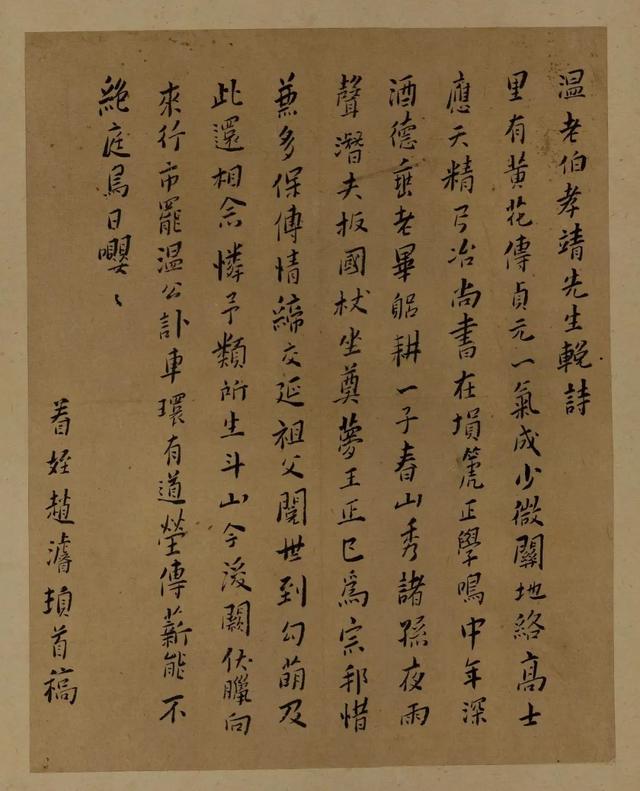 温老伯孝靖先生輓詩
里有黃花傳貞元一氣成少微關地絡高士
應天精弓冶尚書在塤箎正學鳴中年深
酒德垂老畢躬耕一子春山秀諸孫夜雨
聲潛夫扳國杖坐奠夢王正已為宗邦惜
兼多保傅情締交延祖父閱世到勾萌及
此還相念憐予類所生斗山今浚闕伏臘向
來行市罷溫公訃車環有道塋傳薪能不
絕庭鳥日嚶〻
眷姪趙濬頓首稿